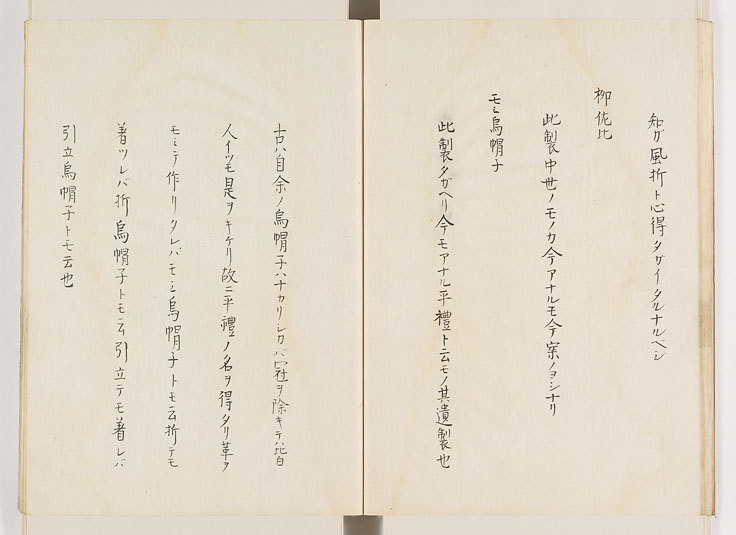 知ガ風折ト心得タガイタルナルベシ
柳佐比
此製中世ノモノカ今アナルモ今案ノヨシナリ
モミ烏帽子
此製タガヘリ今モアナル平禮ト云モノ其遺製也
古ハ自余ノ烏帽子ハナカリシカバ宿ヲ除キテハ皆
人イツモ是ヲキケリ故ニ平禮ノ名ヲ得タリ革ヲ
モミテ作リタレバモミ烏帽子トモ云折テモ
着ツレバ折烏帽子トモ云引立テモ着レバ
引立烏帽子トモ云也